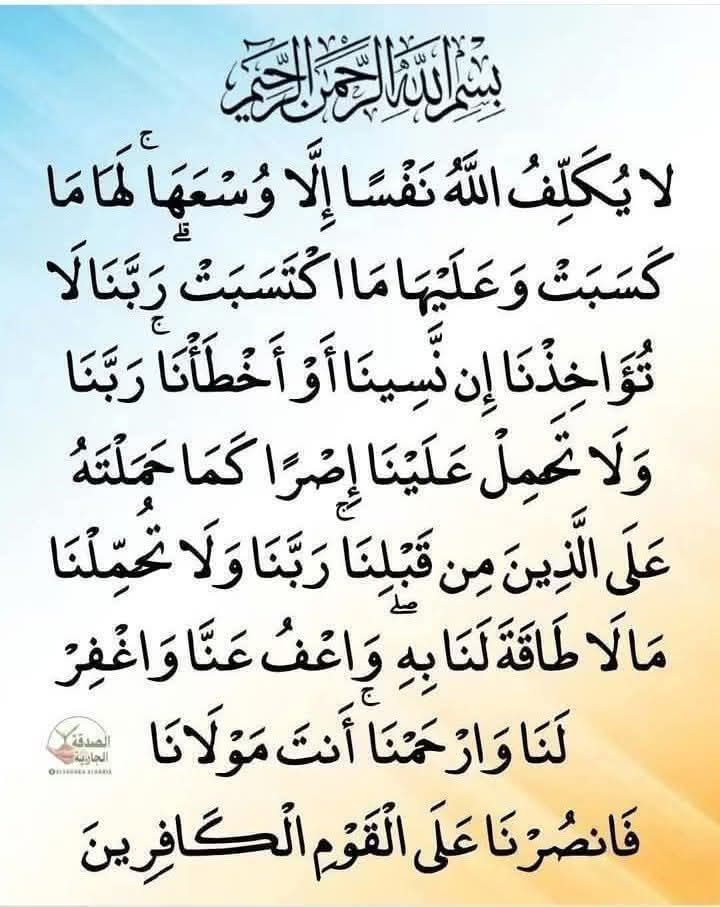 بِسْمِ اللَّهِ الرَّحْمَنِ الرَّحِيمِ
لَا يُكَلِّفُ اللَّهُ نَفْسًا إِلَّا وُسْعَهَا ۚ لَهَا مَا
كَسَبَتْ وَعَلَيْهَا مَا اكْتَسَبَتْ ۗ رَبَّنَا لَا
تُؤَاخِذْنَا إِن نَّسِينَا أَوْ أَخْطَأْنَا ۚ رَبَّنَا
وَلَا تَحْمِلْ عَلَيْنَا إِصْرًا كَمَا حَمَلْتَهُ
عَلَى الَّذِينَ مِن قَبْلِنَا ۚ رَبَّنَا وَلَا تُحَمِّلْنَا
مَا لَا طَاقَةَ لَنَا بِهِ ۖ وَاعْفُ عَنَّا وَاغْفِرْ
لَنَا وَارْحَمْنَا ۚ أَنتَ مَوْلَانَا
فَانصُرْنَا عَلَى الْقَوْمِ الْكَافِرِينَ
الصدقة
الجارية